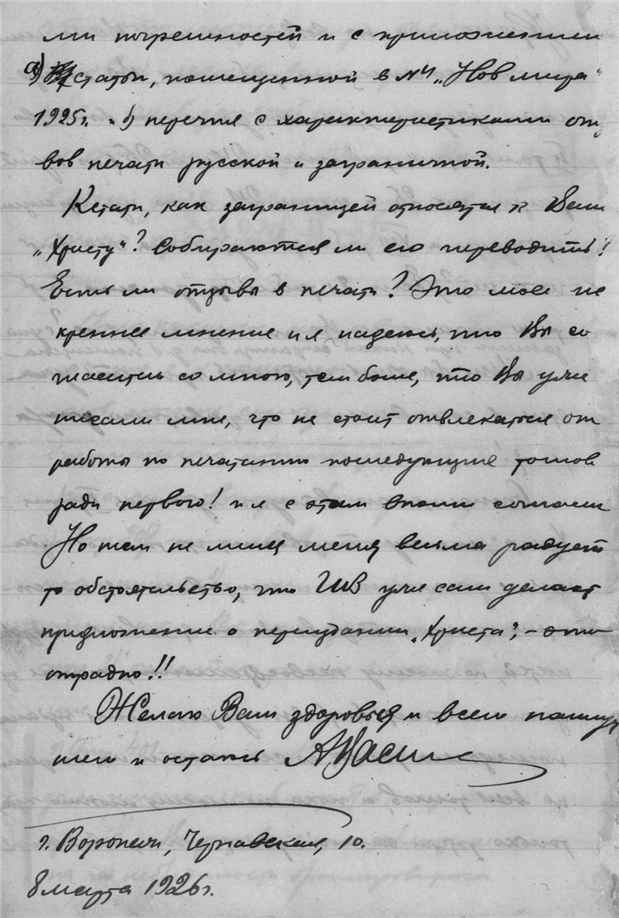 ми погрешностей и с приложением
а) статьи, помещенной в №4 „Нов мира"
1925г. и б) перечня с характеристиками отзы
вов печати русской и заграничной.
Кстати, как заграницей относятся к Вашему
„Христу"? Собираются ли его переводить?
Есть ли отзывы в печати? Это мое ис
креннее мнение и я надеюсь, что Вы со
гласитесь со мною, тем более, что Вы уже
писали мне, что не стоит отвлекаться от
работы по печатанию последующих томов
ради первого! и я с этим вполне согласен
Но тем не менее меня весьма радует
то обстоятельство, что ГИЗ уже сам делает
предложение о переиздании „Христа", – это
отрадно!!
Желаю Вам здоровья и всего наилуч
шего и остаюсь
г. Воронеж, Чернавская, 10.
8 марта 1926г.